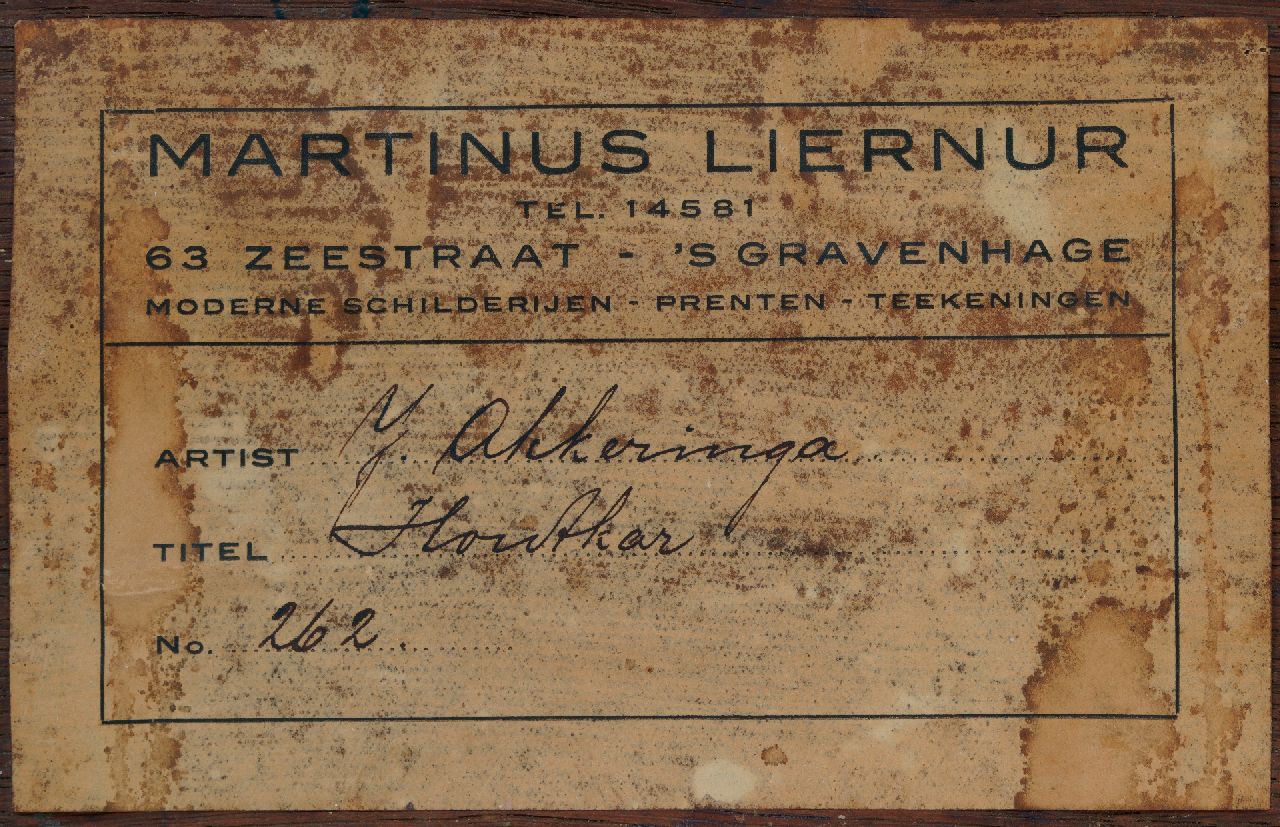 MARTINUS LIERNUR
TEL. 14581
63 ZEESTRAAT - 'S GRAVENHAGE
MODERNE SCHILDERIJEN - PRENTEN - TEEKENINGEN
ARTIST J. Akkeringa
TITEL Houtkar
No. 262.